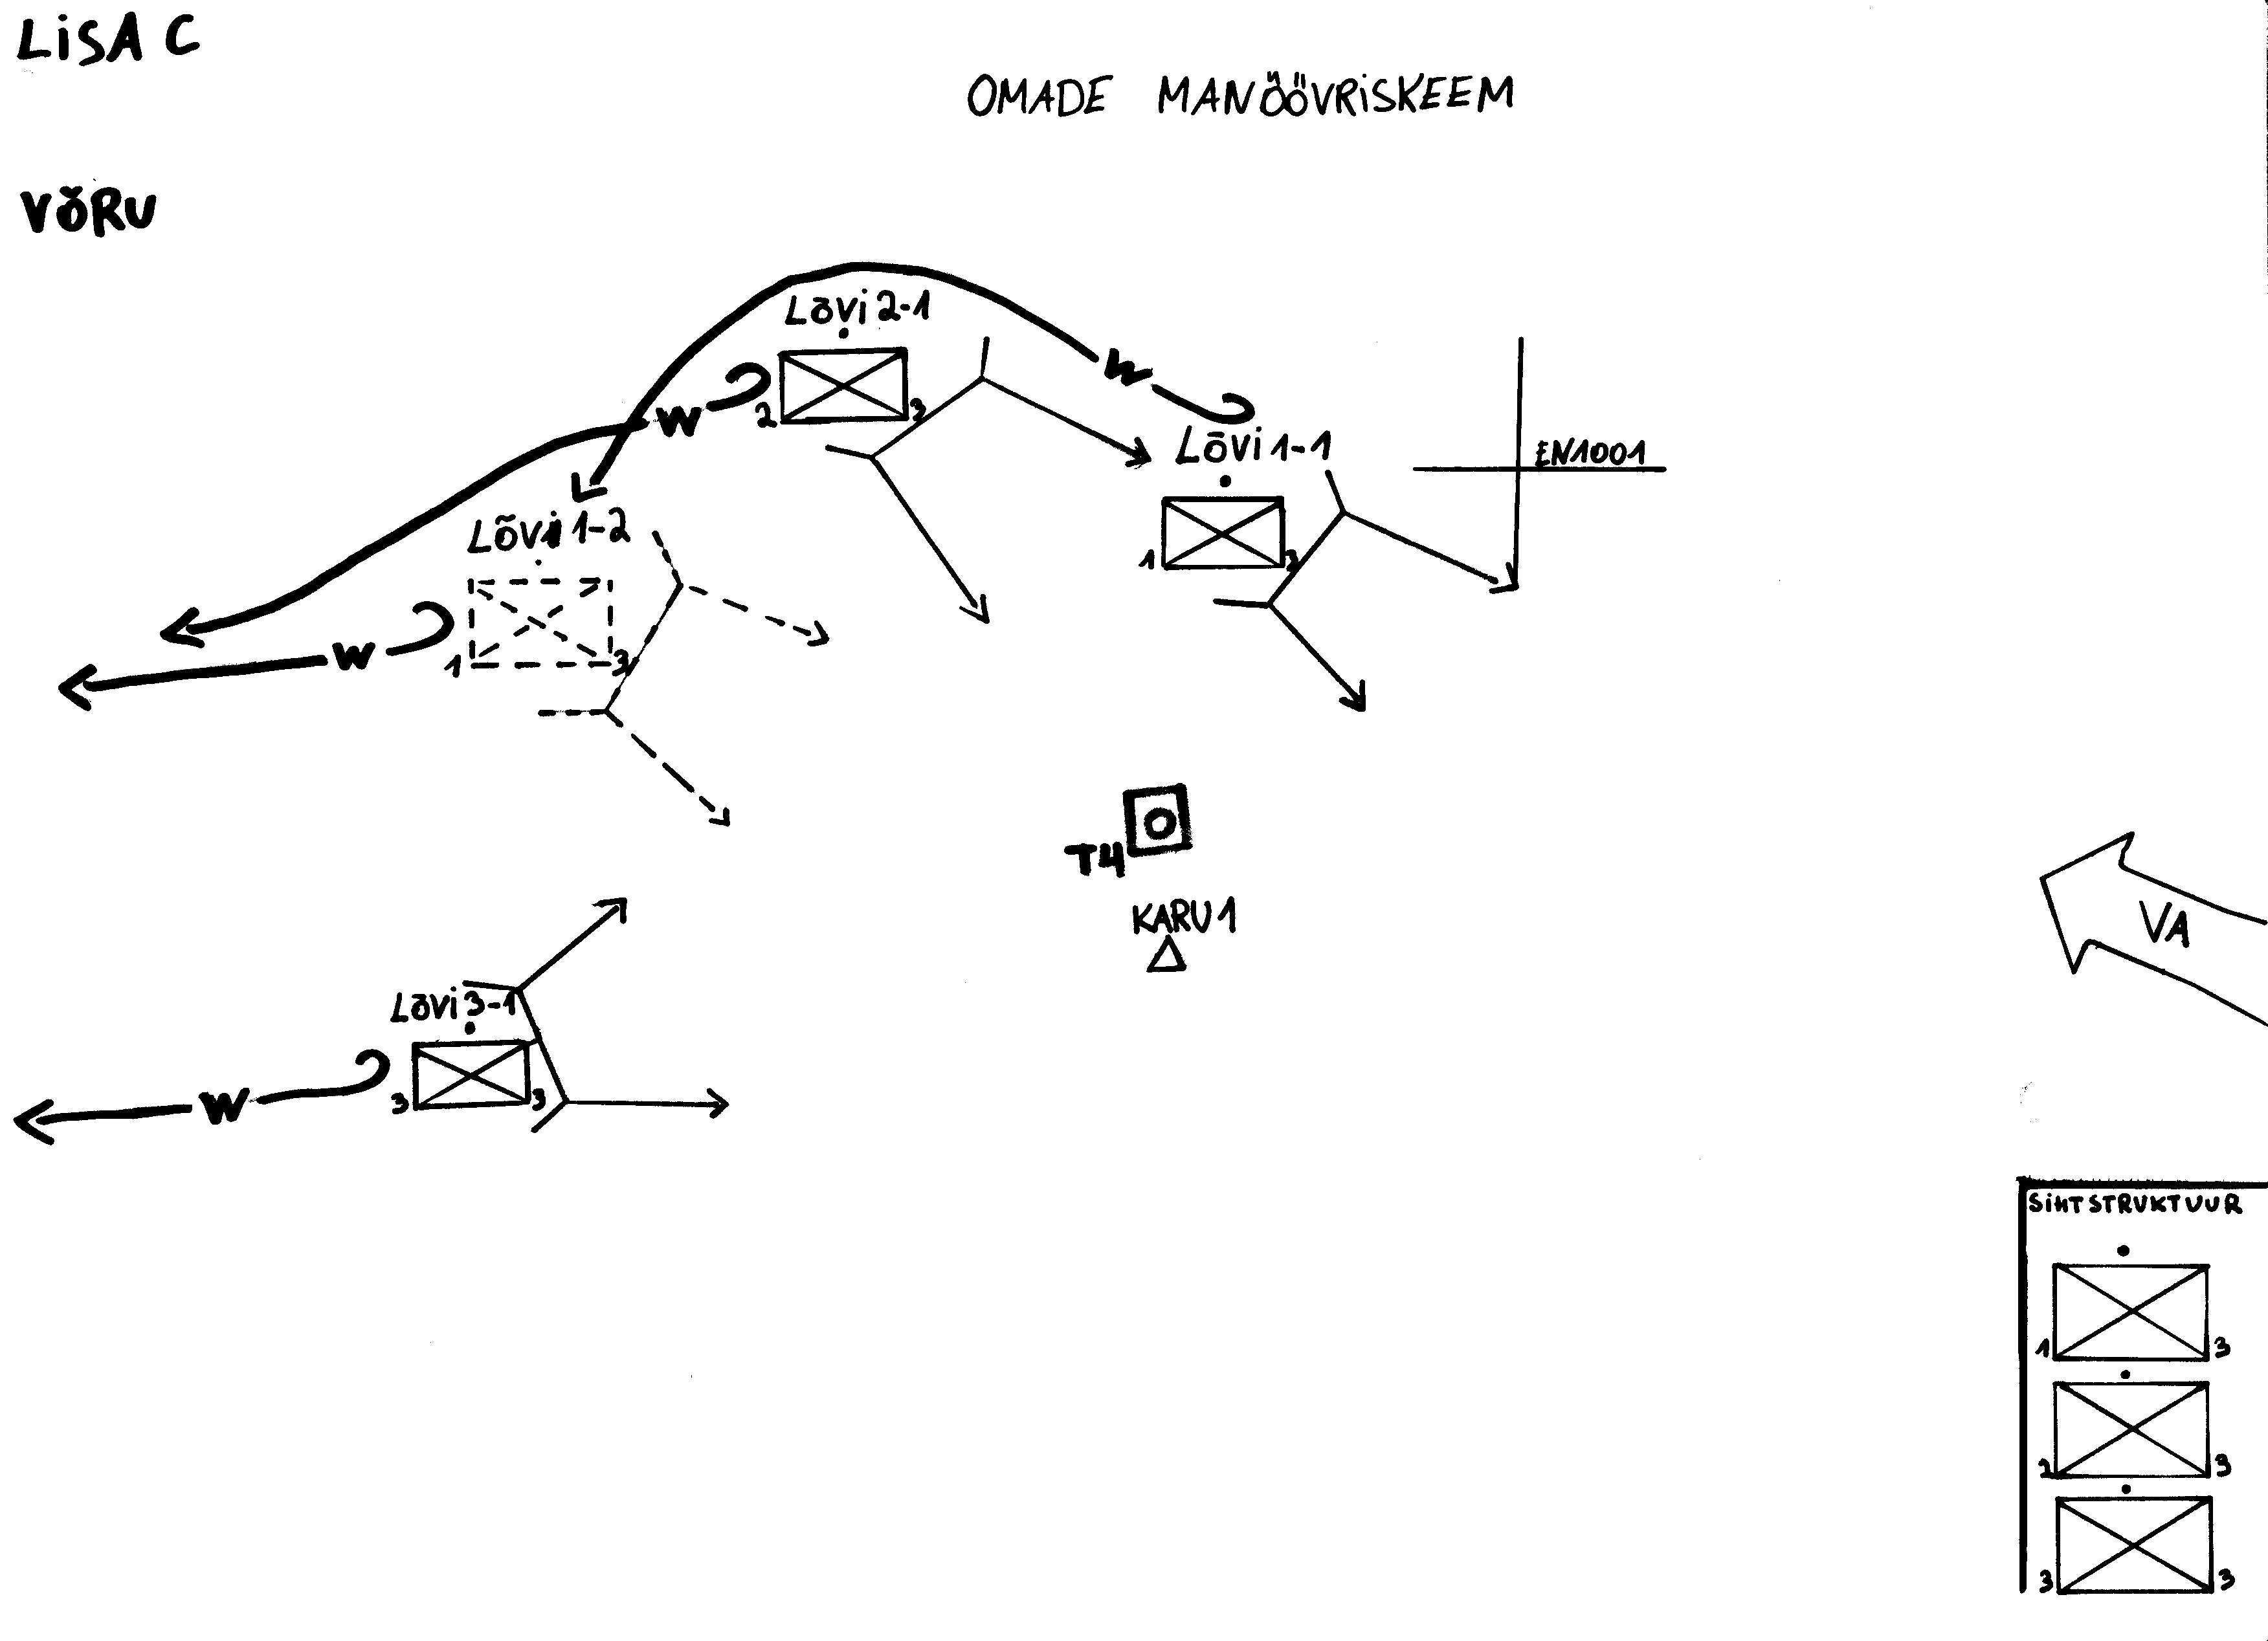 LISA C
OMADE MANÖÖVRISKEEM
VÕRU
Lõvi 2-1
W
W
2 3
Lõvi 1-1
EN1001
1 3
Lõvi 1-2
W
1 3
T4
KARU 1
VA
Lõvi 3-1
W
3 3
SIHTSTRUKTUUR
1 3
2 3
3 3